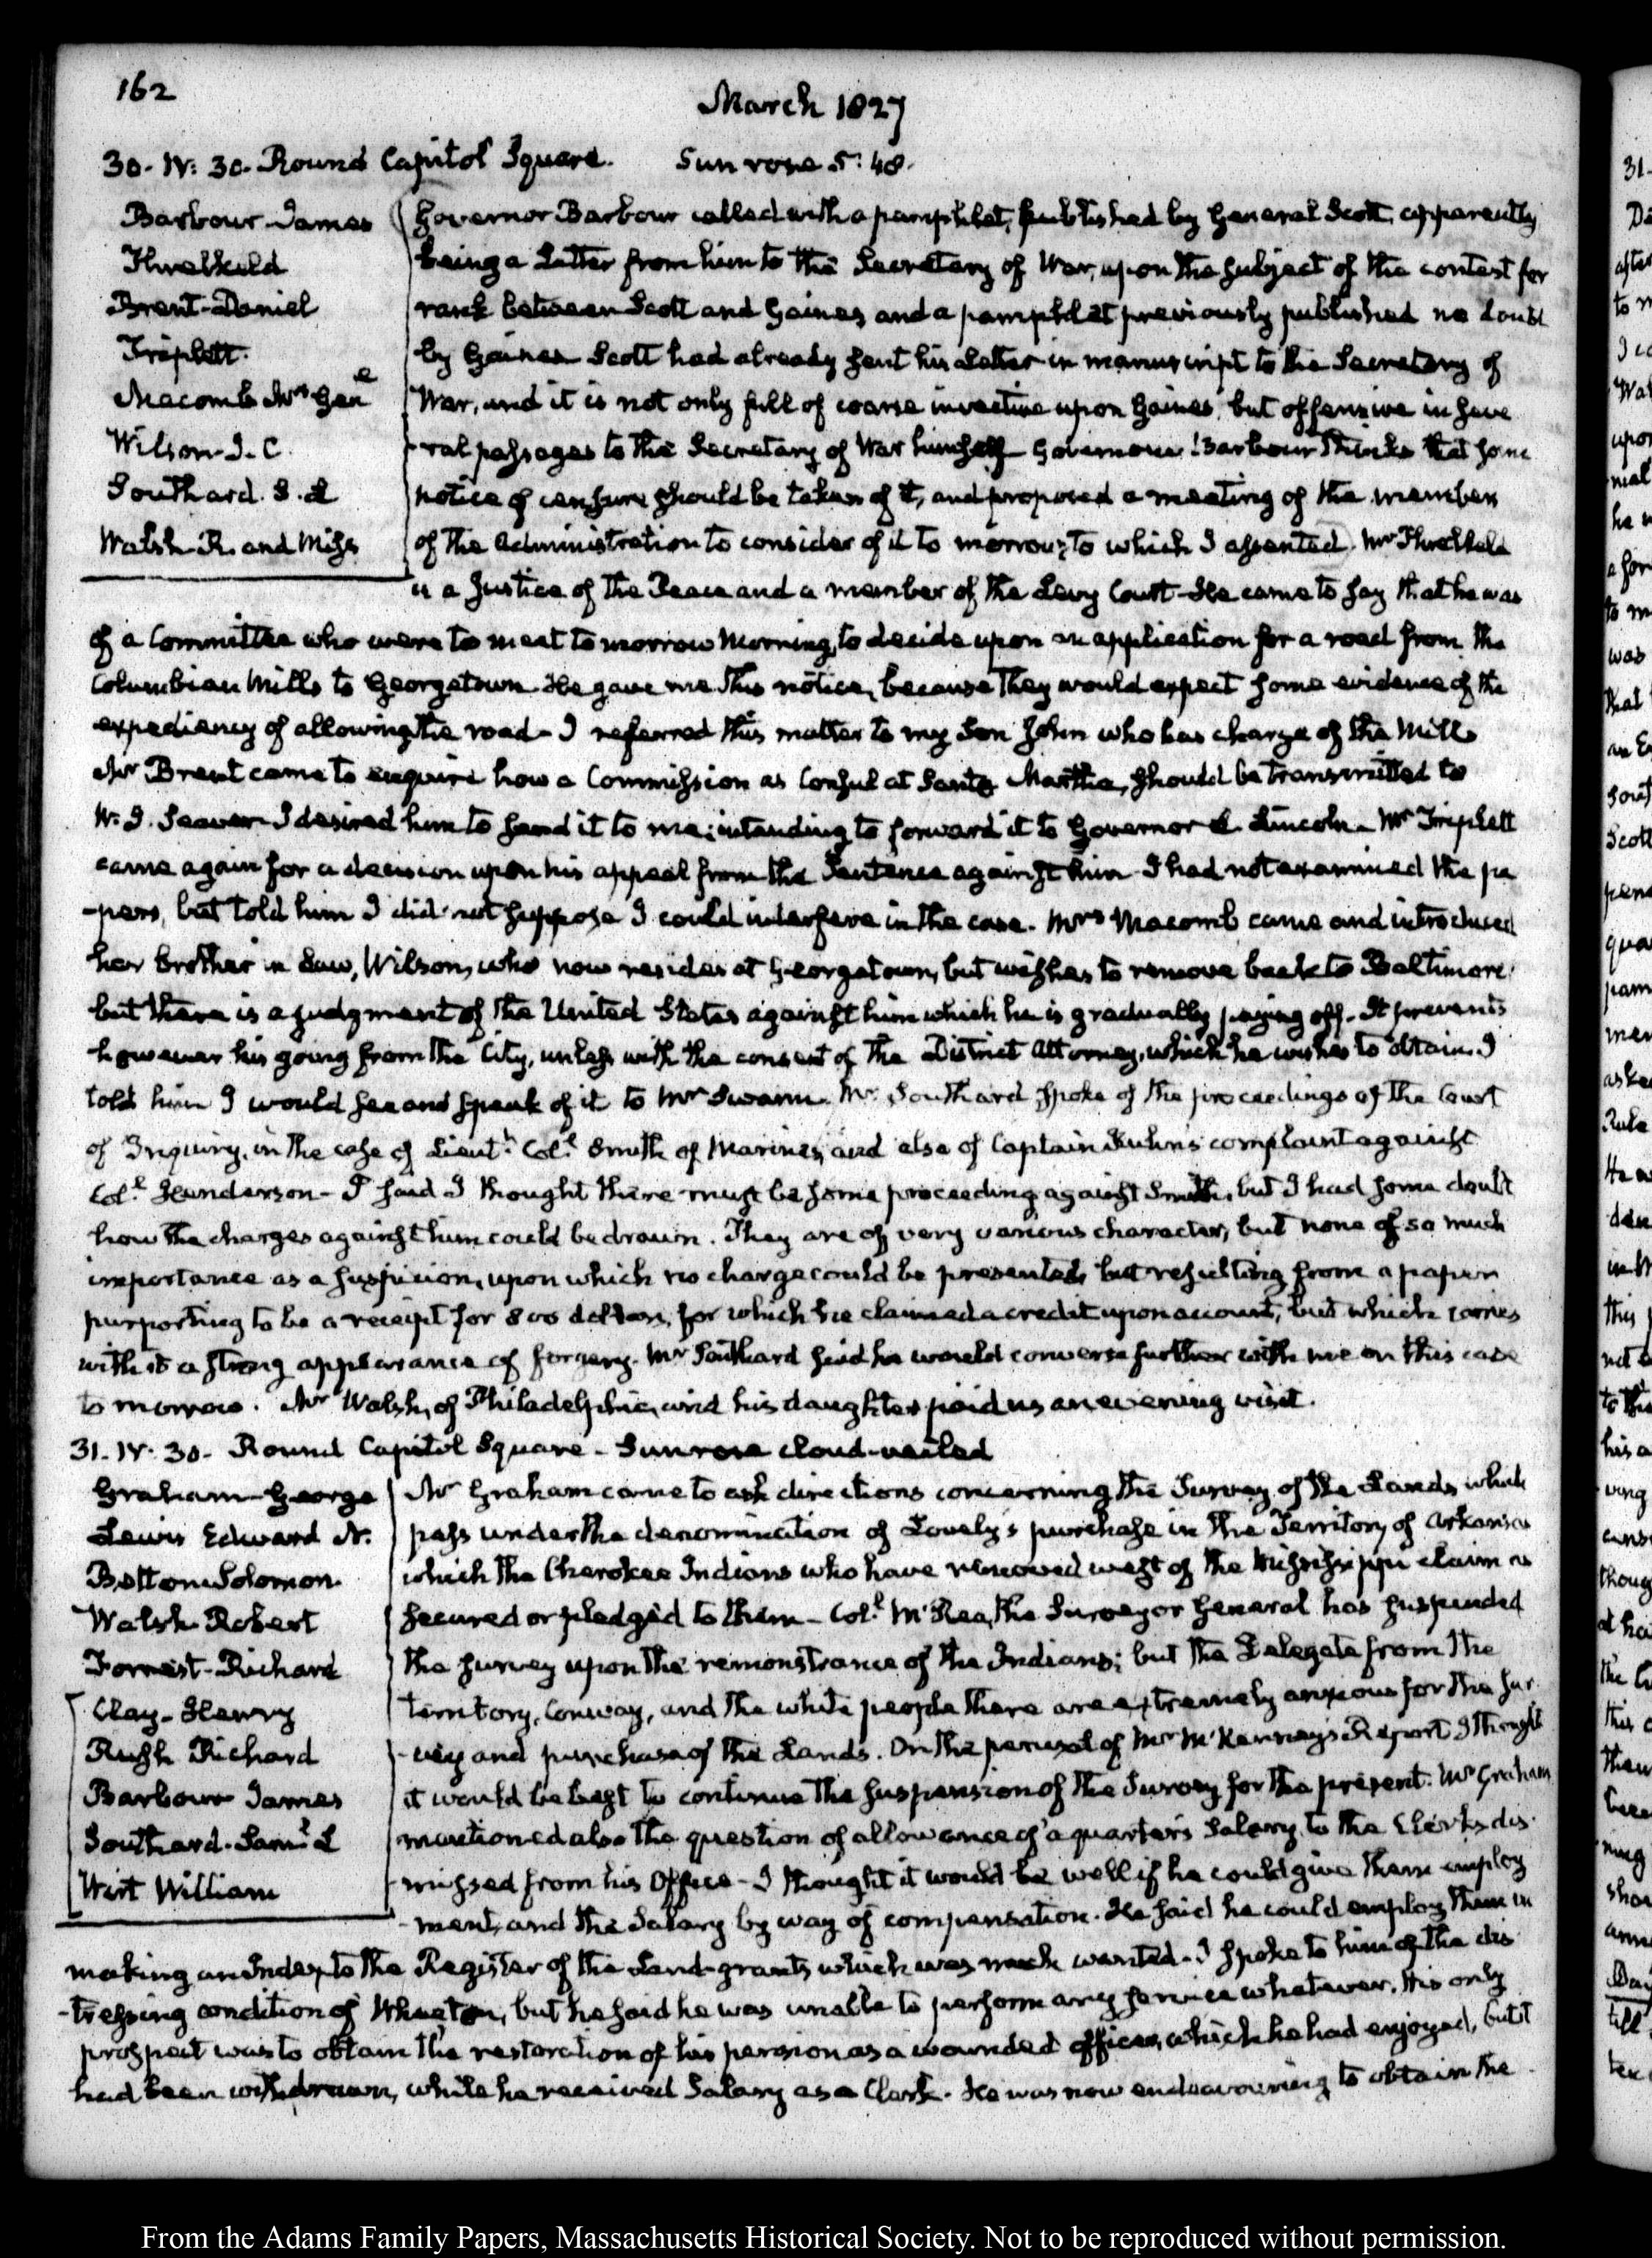 162
March 1827
30. IV: 30. Round Capitol Square. Sun rose 5:48.
Barbour James
Threlkeld
Brent-Daniel
Triplett.
Macomb Mrs Genl
Wilson-J. C.
Southard. S. L
Walsh R. and Miss
Governor Barbour called with a pamphlet, published by General Scott, apparently
being a Letter from him to the Secretary of War, upon the subject of the contest for
rank between Scott and Gaines and a pamphlet previously published no doubt
by Gaines. Scott had already sent his Letter in manuscript to the Secretary of
War, and it is not only full of coarse invective upon Gaines, but offensive in seve
-ral passages to the Secretary of War himself. Governour Barbour thinks that some
notice of censure should be taken of it, and proposed a meeting of the members
of the Administration to consider of it to morrow; to which I assented. Mr Threlkeld
is a Justice of the Peace and a member of the Levy Court. He came to say that he was
of a Committee who were to meet to morrow Morning, to decide upon an application for a road from the
Columbian Mills to Georgetown. He gave me this notice, because they would expect some evidence of the
expediency of allowing the road- I referred this matter to my Son John who has charge of the Mills
Mr Brent came to enquire how a Commission as Consul at Santa Martha, should be transmitted to
W. J. Seaver- I desired him to send it to me; intending to forward it to Governor L. Lincoln- Mr Triplett
came again for a decision upon his appeal from the Sentence against him- I had not examined the pa
-pers, but told him I did not suppose I could interfere in the case. Mrs Macomb came and introduced
her brother in Law, Wilson, who now resides at Georgetown, but wishes to remove back to Baltimore:
but there is a judgment of the United States against him which he is gradually paying off. It prevents
however his going from the City, unless with the consent of the District Attorney, which he wishes to obtain. I
told him I would see and speak of it to Mr Swann. Mr Southard spoke of the proceedings of the Court
of Inquiry, in the case of Lieutt. Coll. Smith of Marines, and also of Captain Kuhn's complaint against
Coll. Henderson- I said I thought there must be some proceeding against Smith, but I had some doubt
how the charges against him could be drawn. They are of very various character, but none of so much
importance as a suspicion, upon which no charge could be presented, but resulting from a paper
purporting to be a receipt for 800 dollars, for which he claimed a credit upon account, but which carries
with it a strong appearance of forgery. Mr Southard said he would converse further with me on this case
to morrow. Mr Walsh, of Philadelphia, and his daughter paid us an evening visit.
31. IV. 30- Round Capitol Square- Sun rose cloud-veiled
Graham-George
Lewis Edward N.
Betton Solomon
Walsh Robert
Forrest-Richard
Clay-Henry
Rush Richard
Barbour James
Southard-Saml L
Wirt William
Mr Graham came to ask directions concerning the Survey of the Lands which
pass under the denomination of Lovely's purchase in the Territory of Arkansas
which the Cherokee Indians who have removed west of the Mississippi claim as
secured or pledged to them- Coll. McRea, the Surveyor General has suspended
the survey upon the remonstrance of the Indians; but the Delegate from the
territory, Conway, and the white people there are extremely anxious for the sur
-vey and purchase of the Lands. On the perusal of Mr McKenney's Report I thought
it would be best to continue the suspension of the Survey for the present. Mr Graham
mentioned also the question of allowance of a quarter's Salary, to the Clerks dis
-missed from his Office- I thought it would be well if he could give them employ
-ment, and the Salary by way of compensation. He said he could employ them in
making an Index to the Register of the Land-grants which was much wanted- I spoke to him of the dis
-tressing condition of Wheaton, but he said he was unable to perform any service whatever. His only
prospect was to obtain the restoration of his pension as a wounded officer, which he had enjoyed, but it
had been withdrawn, while he received Salary as a Clerk. He was now endeavouring to obtain the
From the Adams Family Papers, Massachusetts Historical Society. Not to be reproduced without permission.